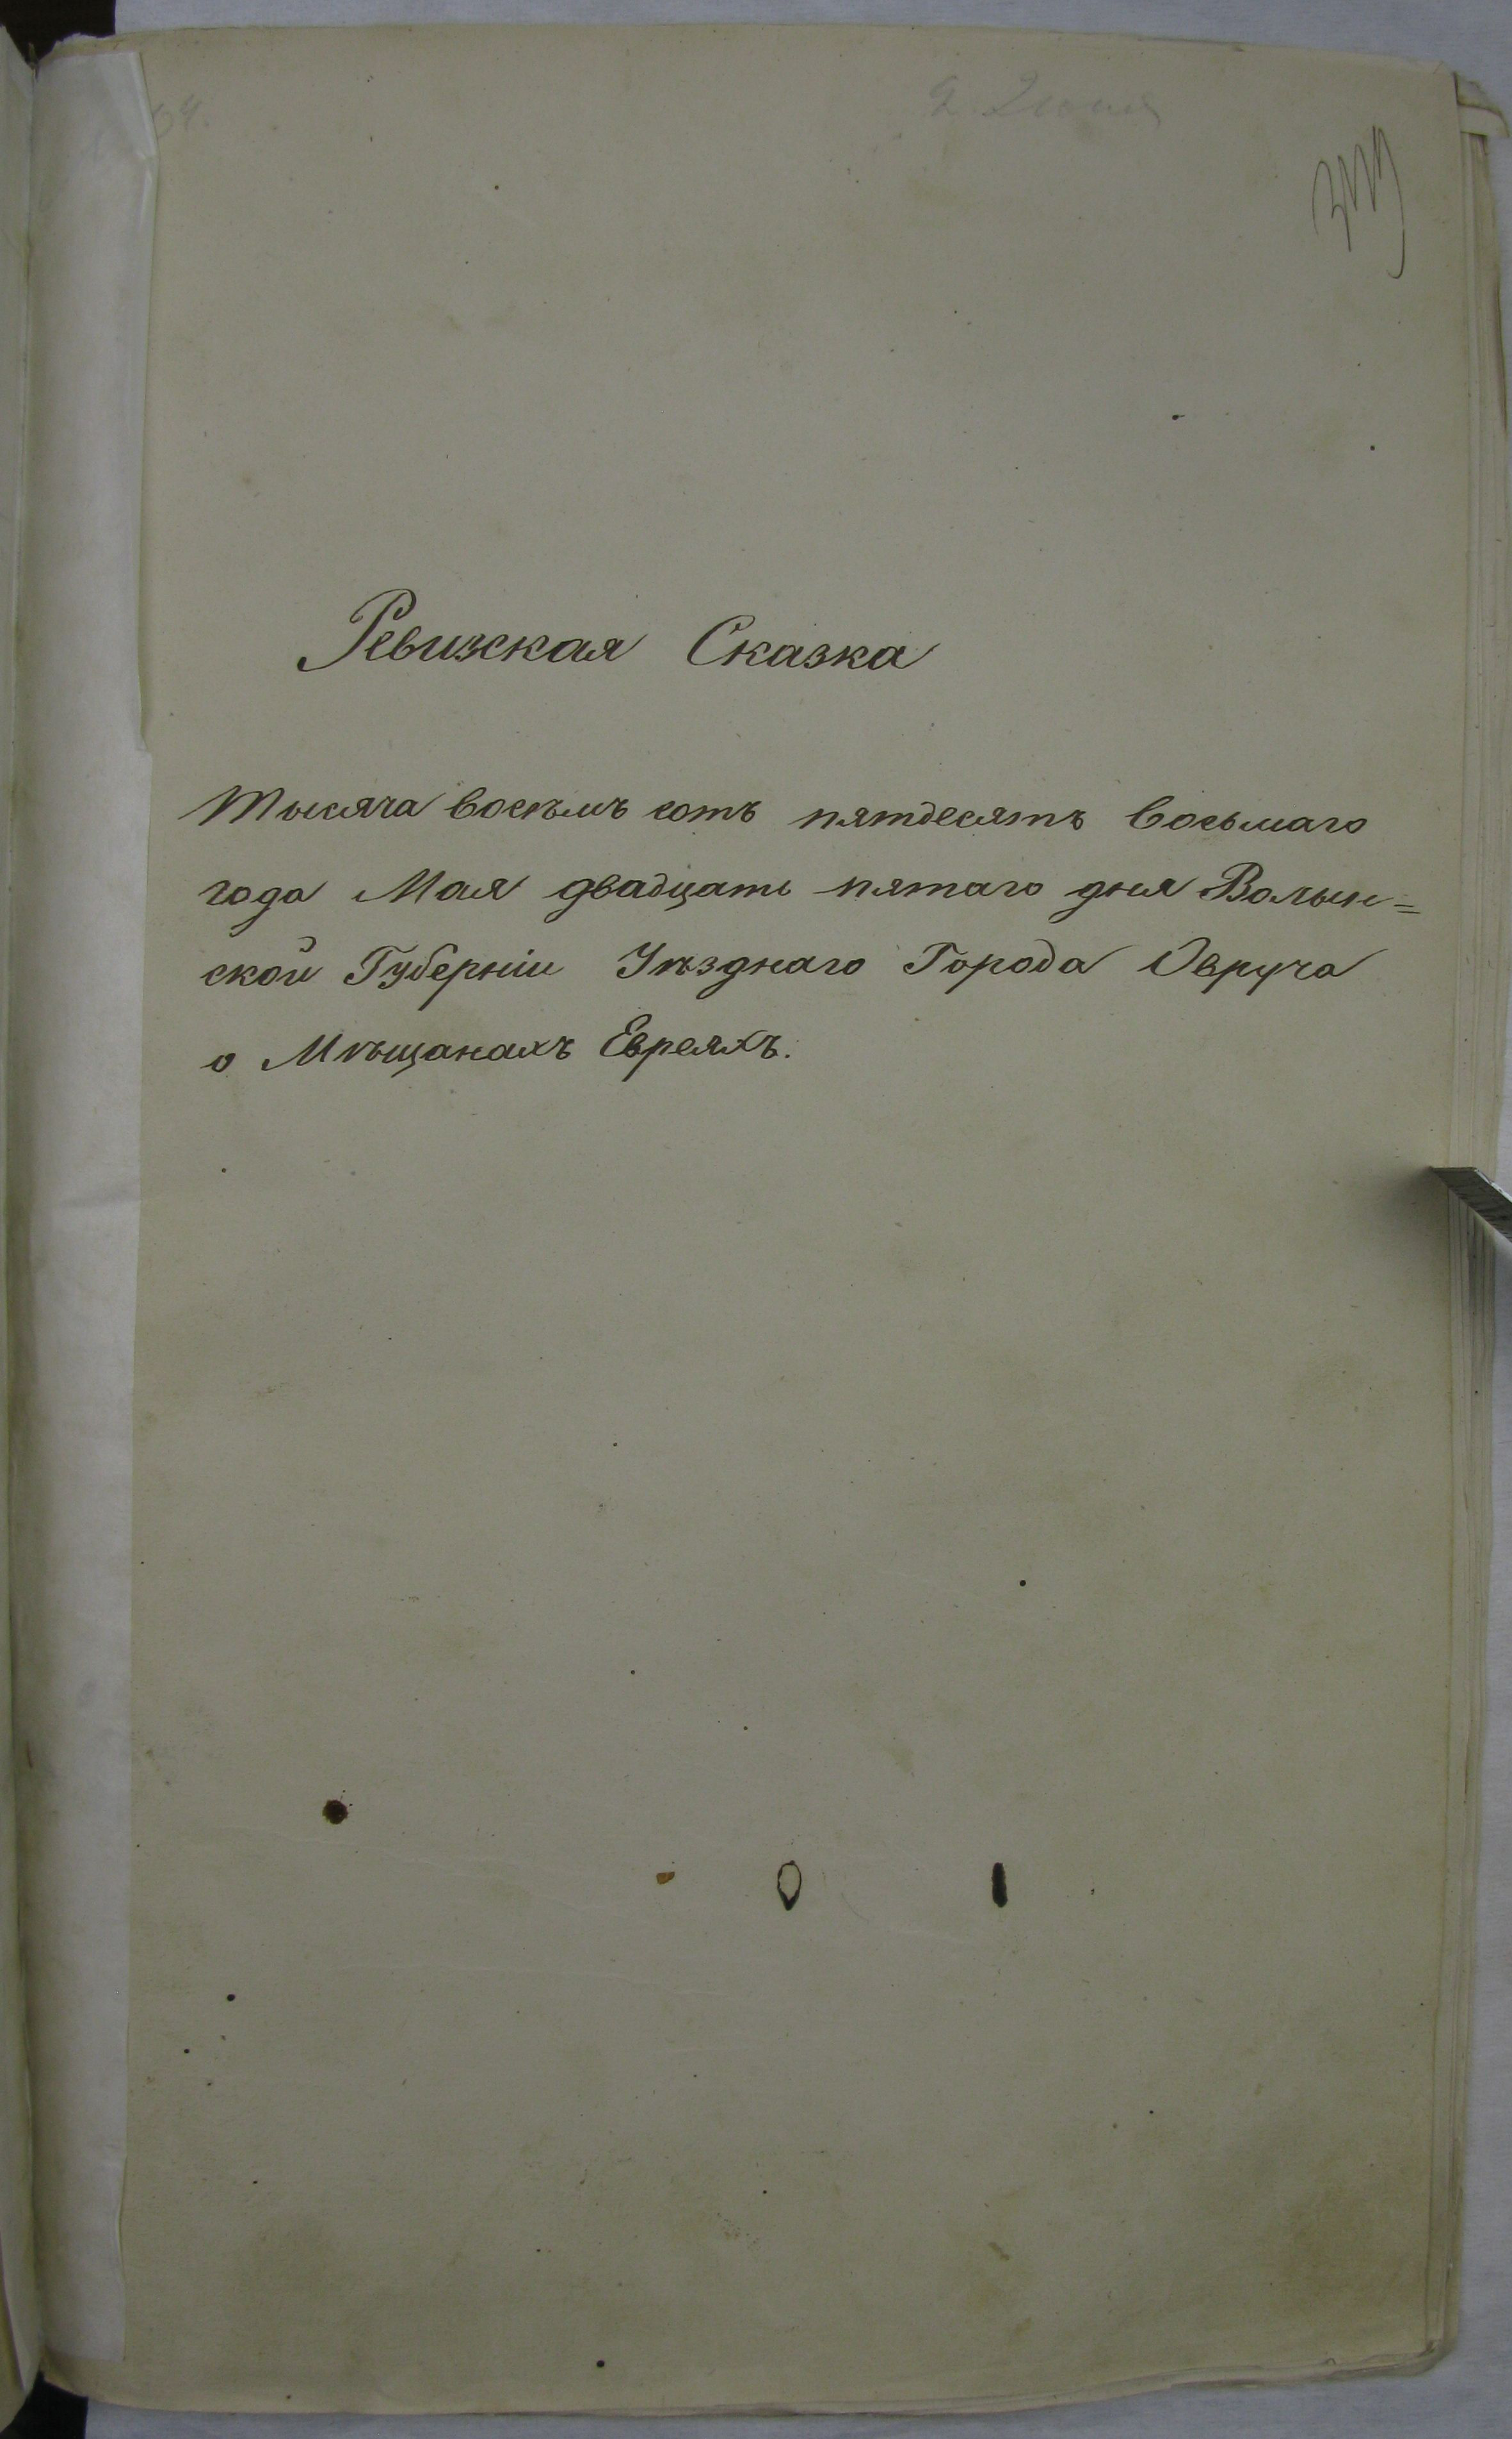 Ревизская Сказка
Тысяча восемь сотъ пятдесятъ восьмаго
года Мая двадцать пятаго дня Волын=
ской Губерніи Уѣзднаго Города Овруча
о Мѣщанахъ Евреяхъ.